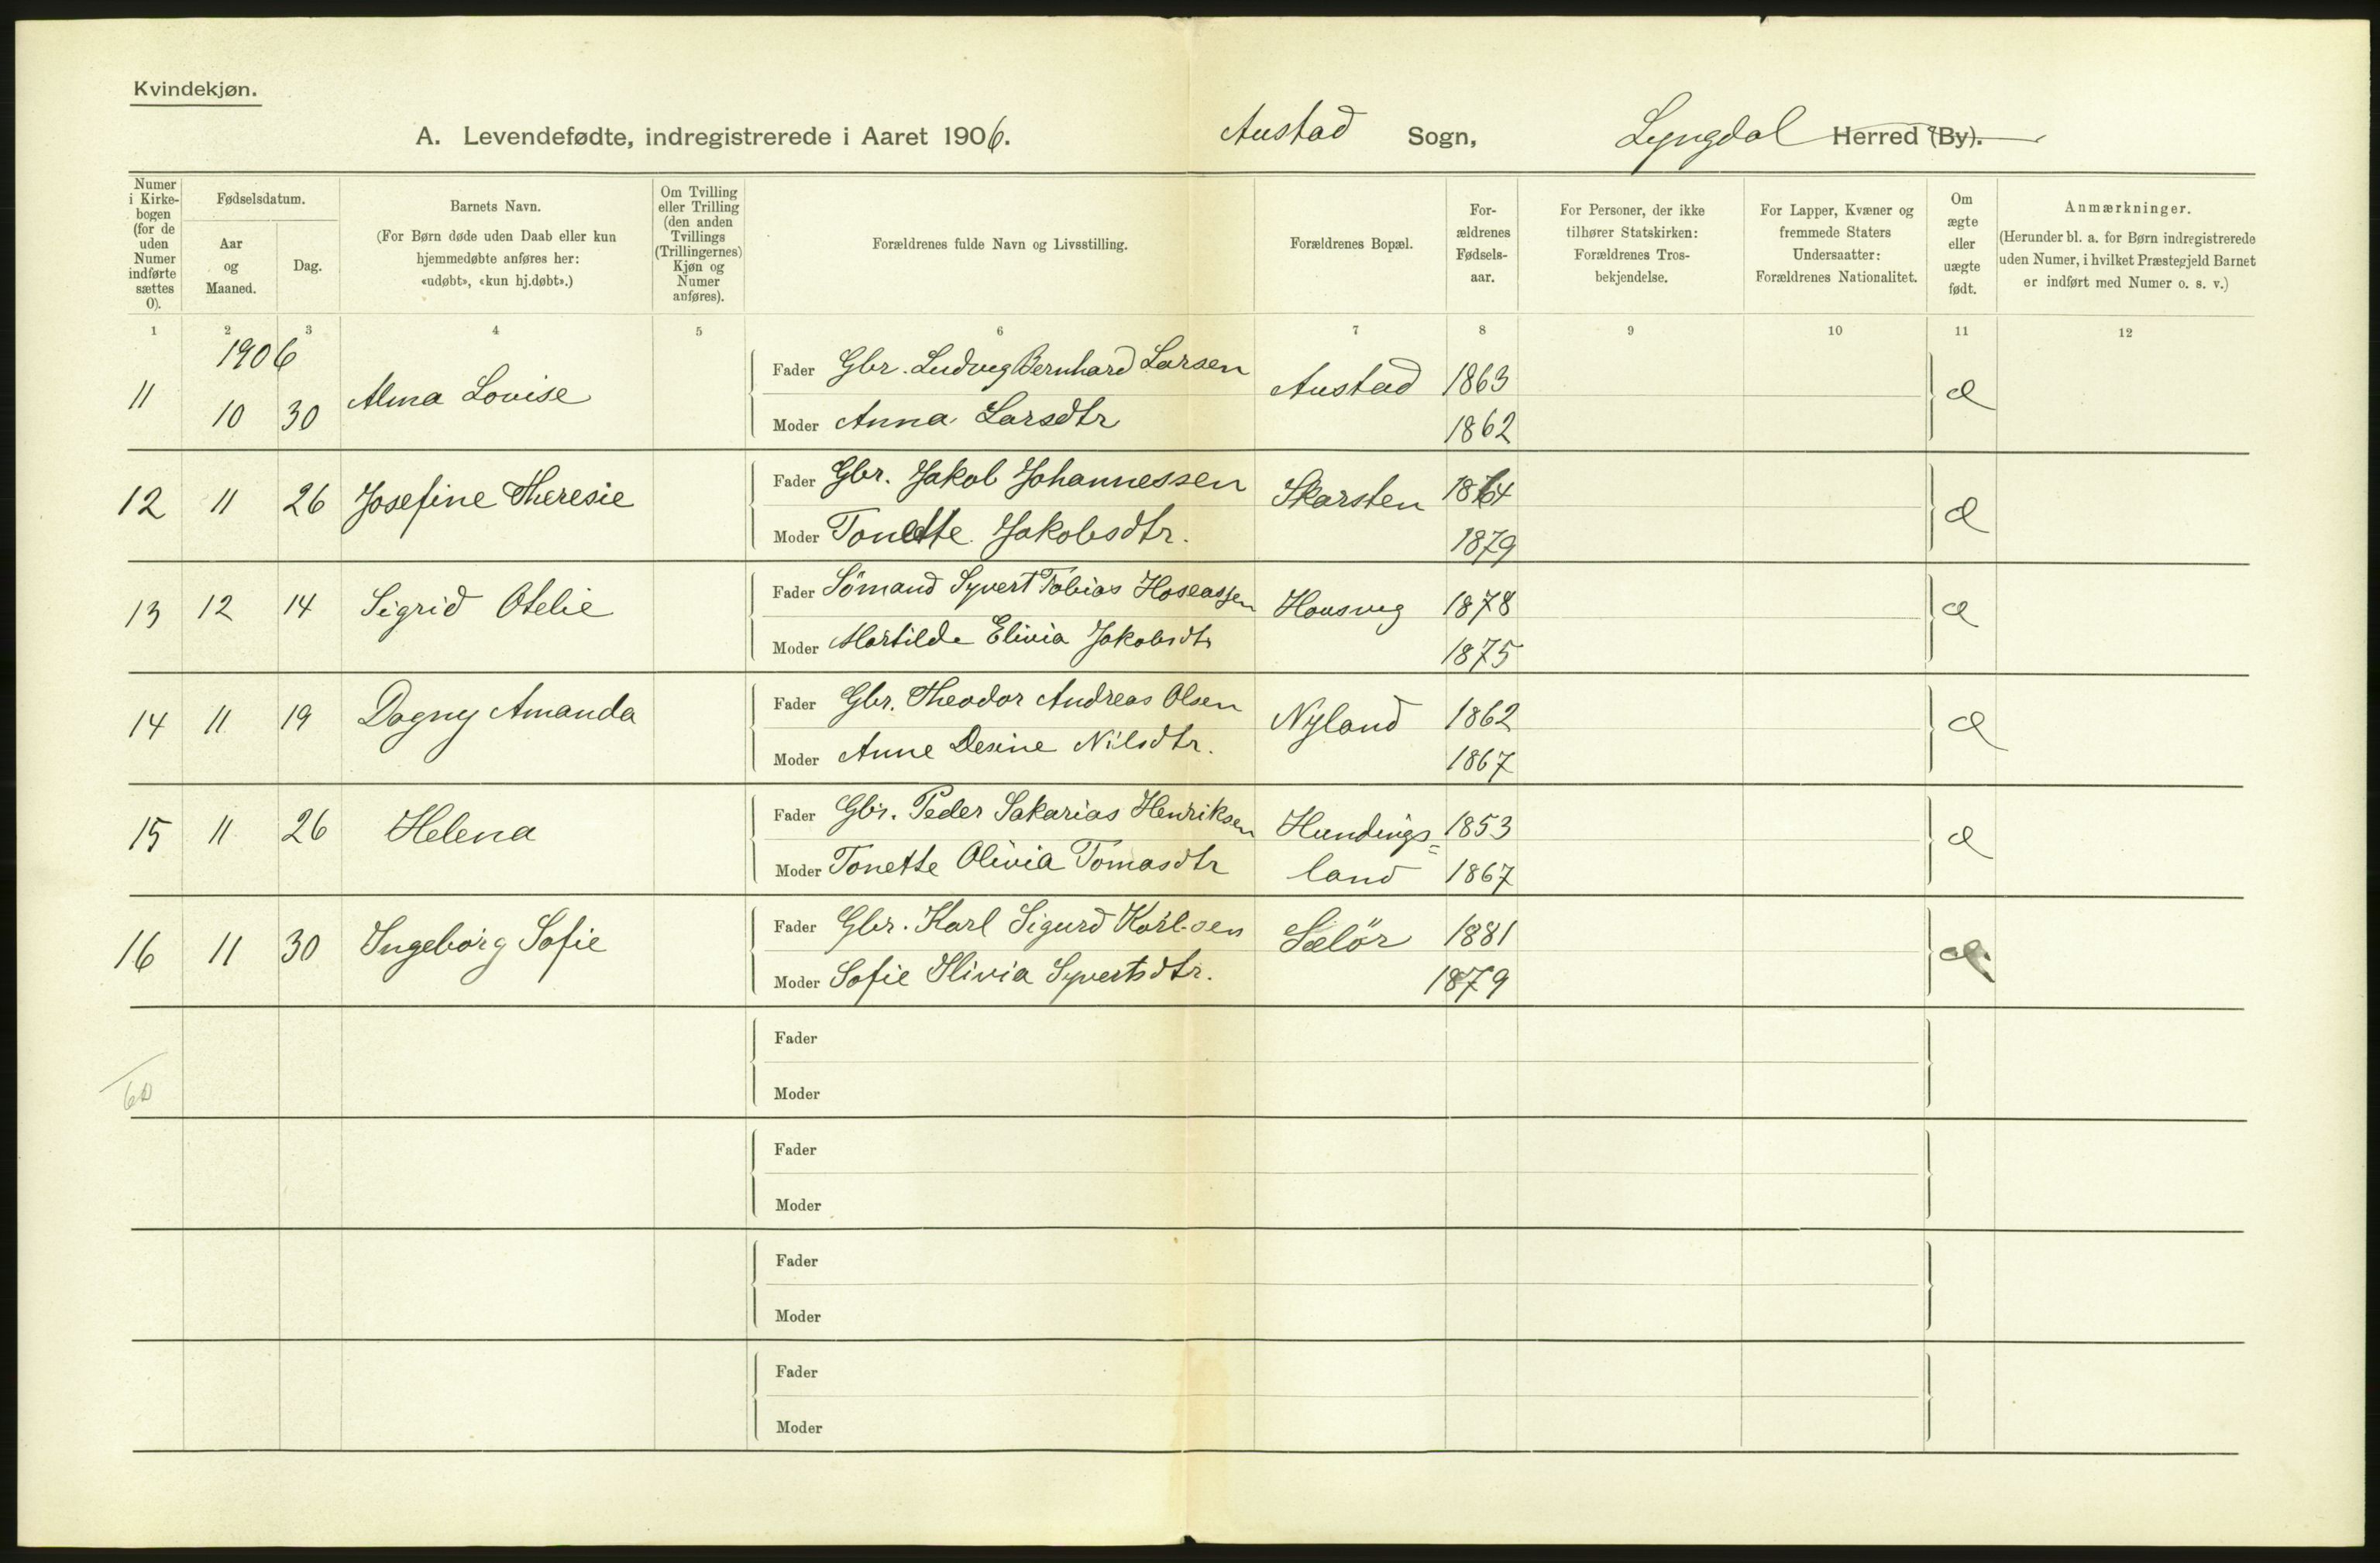 Kvindekjøn.
A. Levendefødte, indregistrerede i Aaret 1906. Austad Sogn, Lyngdal Herred (By).
Numer i Kirkebogen (for de uden Numer indførte sættes 0).
Fødselsdatum.
Aar og Maaned.
Dag.
Barnets Navn.
(For Børn døde uden Daab eller kun
hjemmedøbte anføres her:
«udøbt», «kun hj.døbt».)
Om Tvilling
eller Trilling
(den anden
Tvillings
(Trillingernes)
Kjøn og
Numer
anføres).
Forældrenes fulde Navn og Livsstilling.
Forældrenes Bopæl.
For-
ældrenes
Fødsels-
aar.
For Personer, der ikke
tilhører Statskirken:
Forældrenes Tros-
bekjendelse.
For Lapper, Kvæner og
fremmede Staters
Undersaatter:
Forældrenes Nationalitet.
Om
ægte
eller
uægte
født.
Anmærkninger.
(Herunder bl. a. for Børn indregistrerede
uden Numer, i hvilket Præstegjeld Barnet
er indført med Numer o. s. v.)
1 2 3 4 5 6 7 8 9 10 11 12
1906
11 10 30 Alma Louise Fader Gbr. Ludvig Bernhard Larsen Austad 1863 æ
Moder Anna Larsdtr 1862
12 11 26 Josefine Theresie Fader Gbr. Jakob Johannessen Skarsten æ
Moder Tonette Jakobsdtr. 1879
13 12 14 Sigrid Otelie Fader Sömand Syvert Tobias Hoseassen 1878 æ
Moder Martilde Elivia Jakobsdtr 1875
14 11 19 Dagny Amanda Fader Gbr. Theodor Andreas Olsen Nyland 1862 æ
Moder Anne Desine Nilsdtr. 1867
15 11 26 Helena Fader Gbr. Peder Sakarias Henriksen Hundings= 1853 æ
Moder Tonette Olivia Tomasdtr land 1867
16 11 30 Ingeborg Sofie Fader Gbr. Karl Sigurd Karlsen Selör 1881 æ
Moder Sofie Olivia Syvertsdtr. 1879
Fader
Moder
Fader
Moder
Fader
Moder
Fader
Moder